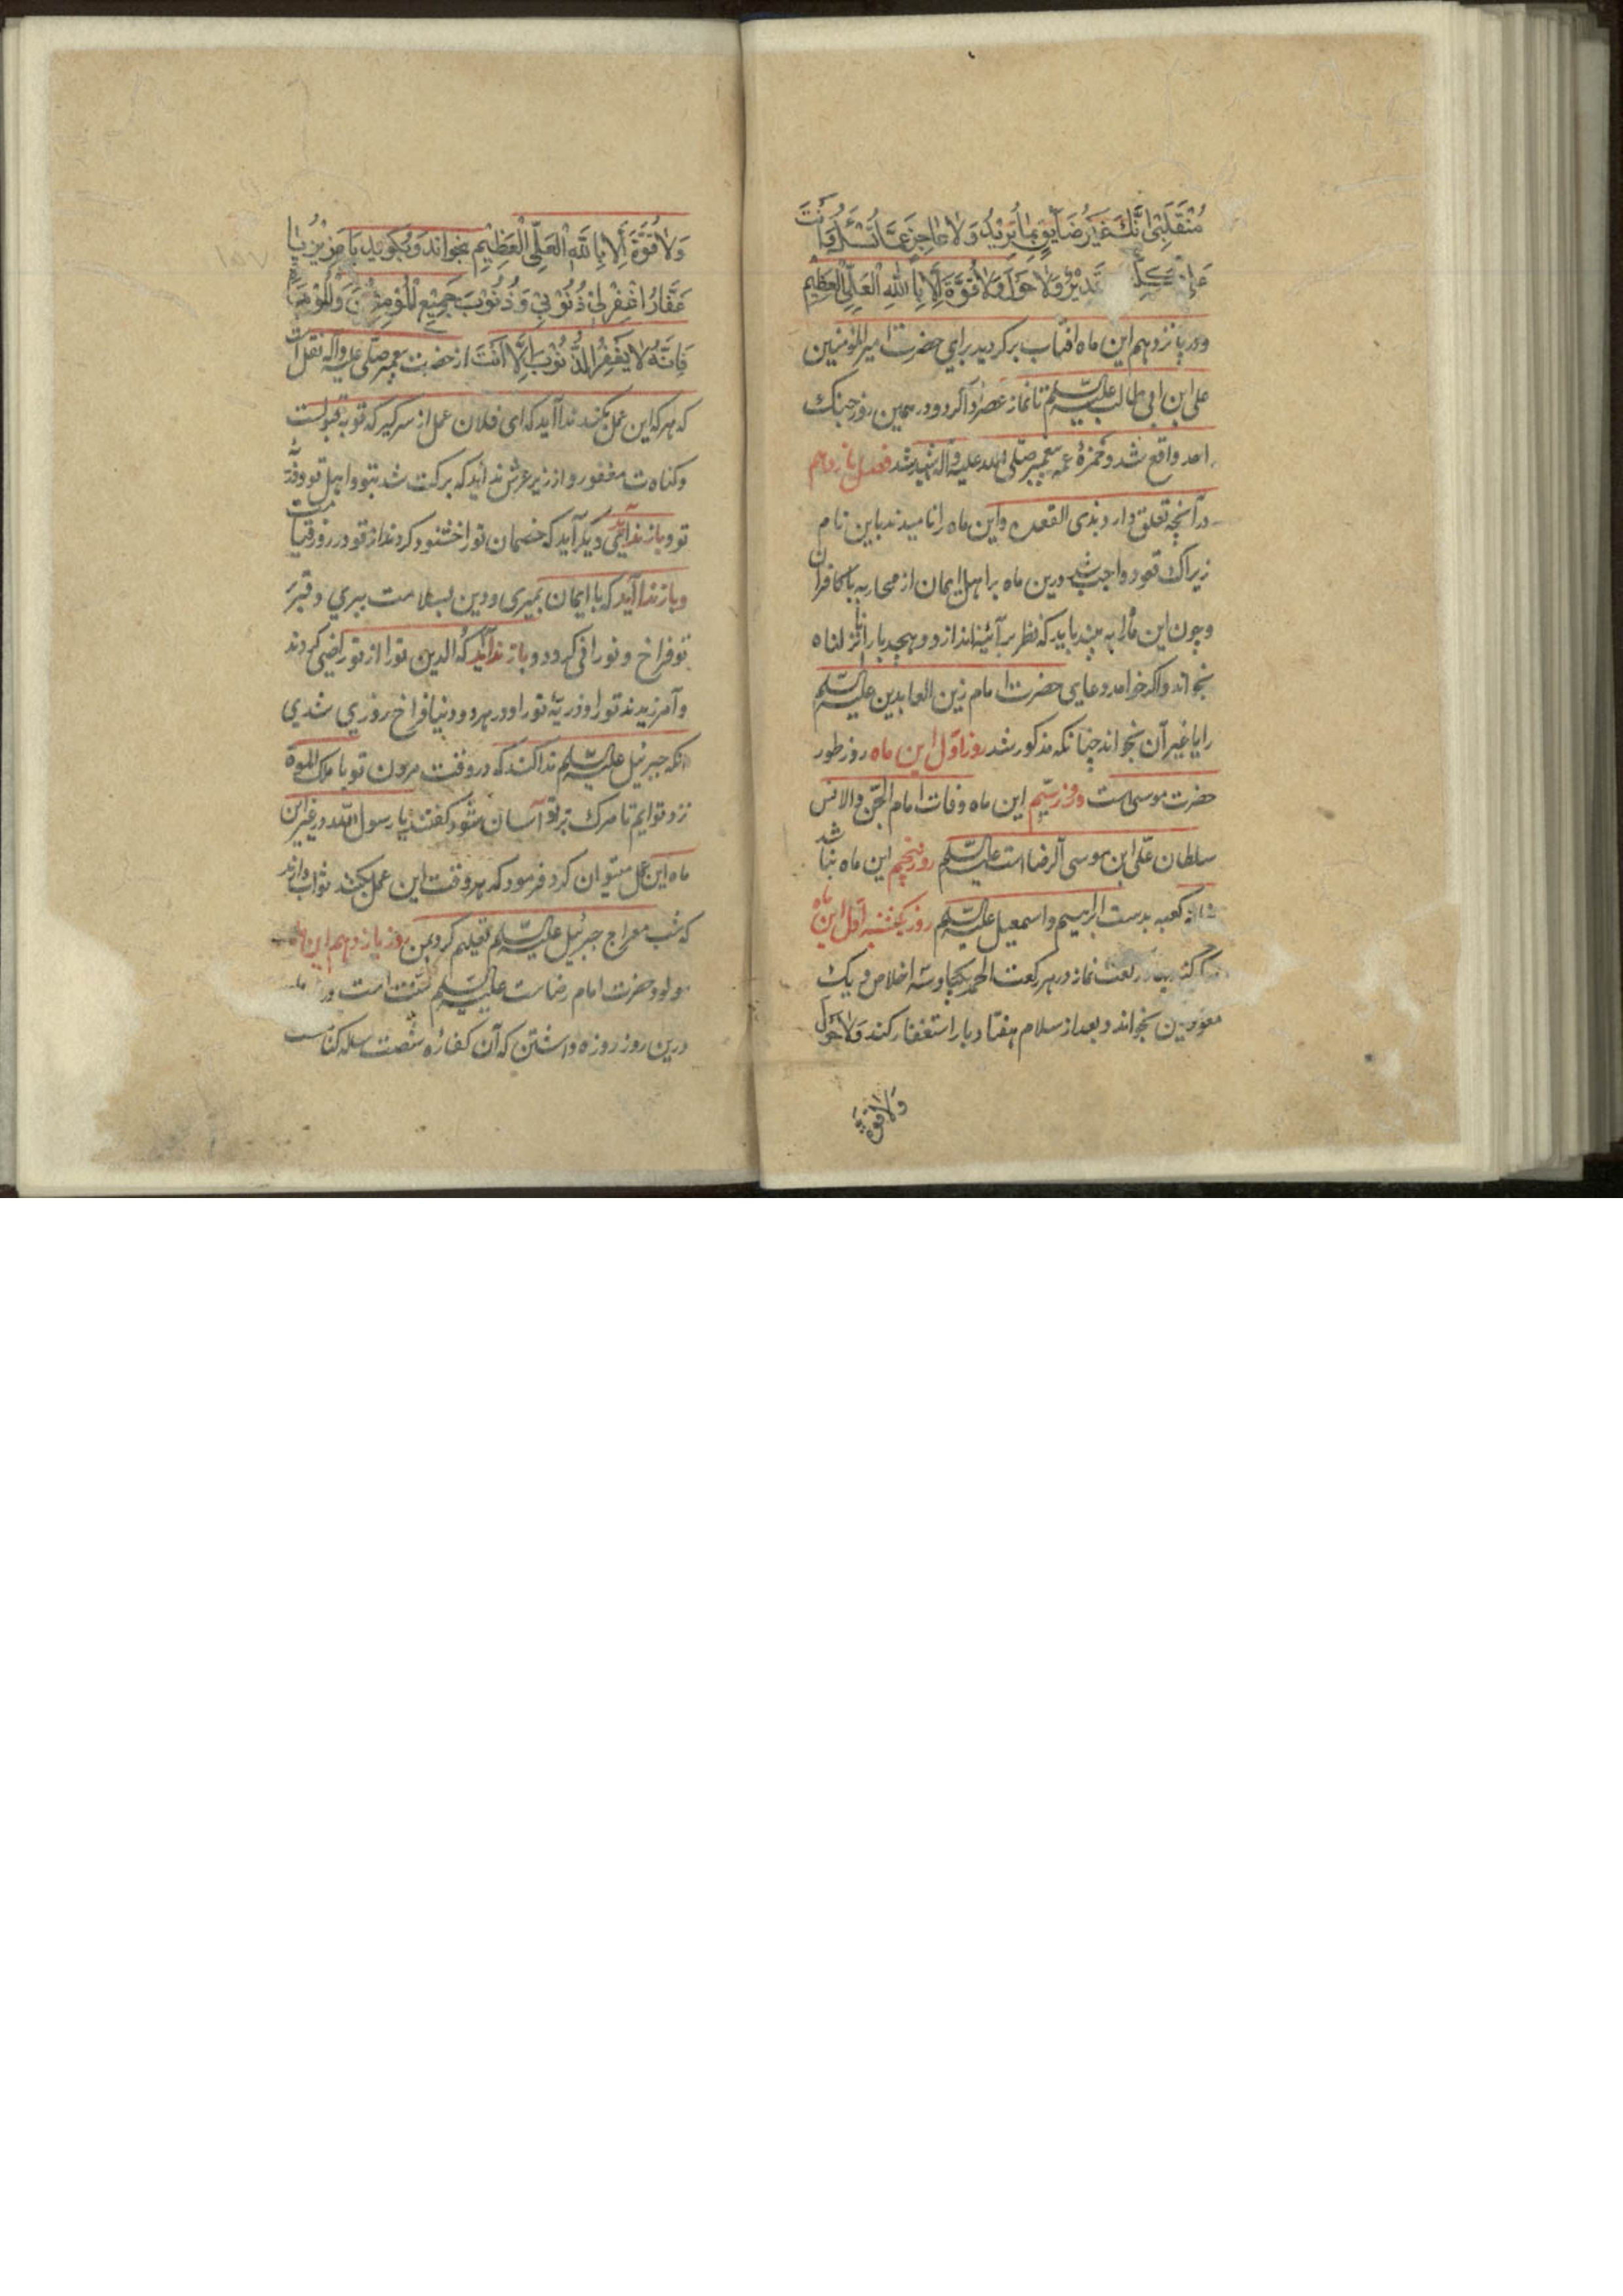 مُنْقَلِبِیْ اِنَّكَ غَیْرُ ضَآیِقٍ بِمَا تُرِیْدُ وَلَا عَاجِزٍ عَمَّا تُسْئَلُ وَاَنْتَ
عَلٰی كُلِّ قَدِیْرٌ وَلَا حَوْلَ وَلَا قُوَّةَ اِلَّا بِاللّٰهِ الْعَلِیِّ الْعَظِیْمِ
ودر پانزدهم این ماه افتاب برکردید برای حضرت امیر المؤمنین
علی ابن ابی طالب علیه السلم تا نماز عصر ادا کرد و در همین روز جنك
احد واقع شد و حمزه عم پیغمبر صلی الله علیه واله شهید شد فصل یازدهم
در آنچه تعلق دارد بذی القعده واین ماه را نامیدند باین نام
زیراك قعود واجب شد درین ماه بر اهل ایمان از محاربه با کافران
وچون این ماه را به بیند باید که نظر بر آئینه اندازد و هجده بار انا انزلناه
بخواند واکر خواهد دعای حضرت امام زین العابدین علیه السلم
را یا غیر آن بخواند چنانکه مذکور شد روز اول این ماه روز طور
حضرت موسی است و روز سیم این ماه وفات امام الجن والانس
سلطان علی ابن موسی الرضا است علیه السلم روز پنجم این ماه بنا شد
خانه کعبه بدست ابراهیم واسمعیل علیه السلم روز یکشنبه اول این ماه
رکعت نماز در هر رکعت الحمد یکبار وسه اخلاص و یك
معوذتین بخواند وبعد از سلام هفتاد بار استغفار کند وَلَا حَوْلَ
وَلَا قُوَّةَ
وَلَا قُوَّةَ اِلَّا بِاللّٰهِ الْعَلِیِّ الْعَظِیْمِ بخواند وبگوید یَا عَزِیْزُ یَا
غَفَّارُ اغْفِرْ لِیْ ذُنُوْبِیْ وَذُنُوْبَ جَمِیْعِ الْمُؤْمِنِیْنَ وَالْمُؤْمِنَاتِ
فَاِنَّهُ لَا یَغْفِرُ الذُّنُوْبَ اِلَّا اَنْتَ از حضرت پیغمبر صلی علیه وآله نقل است
که هر که این عمل بکند ندا آید که ای فلان عمل از سر کیر که توبه قبولست
وکناهت مغفور واز زیر عرش ندا آید که برکت شد بتو واهل تو وذریه
تو وباز ندائی دیکر آید که خصمان تو را خشنود کردند از تو در روز قیامت
وباز ندا آید که با ایمان بمیری ودین بسلامت ببری وقبر
تو فراخ و نورانی کردد و باز ندا آید که والدین تو را از تو راضی کردند
وآمرزیدند تو را وذریه تو را ودر هر دو دنیا فراخ روزی شدی
آنکه جبرئیل علیه السلم ندا کند که در وقت مردن تو با ملك الموت
نزد تو ایم تا مرك بر تو آسان شود گفتند یا رسول الله در غیر این
ماه این عمل میتوان کرد فرمود که هر وقت این عمل بکند ثواب دارد
که شب معراج جبرئیل علیه السلم تعلیم کرد بمن روز یازدهم این ماه
مولود حضرت امام رضاست علیه السلم سنت است
درین روز روزه داشتن که آن کفاره شصت ساله کناست